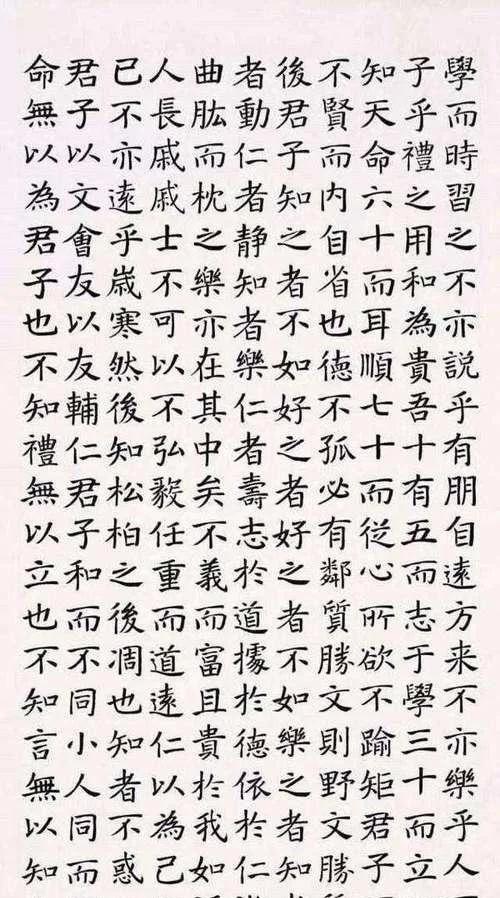 學而時習之不亦説乎有朋自遠方来不亦樂乎人
子乎禮之用和為貴吾十有五而志于學三十而立
知天命六十而耳順七十而従心所欲不踰矩君子
不賢而内自省也德不孤必有鄰質勝文則野文勝
後君子知之者不如好之者好之者不如樂之者知
者動仁者静知者樂仁者壽志於道據於德依於仁
曲肱而枕之樂亦在其中矣不義而富且貴於我如
人長戚戚士不可以不弘毅任重而道遠仁以為己
已不亦遠乎歳寒然後知松柏之後凋也知者不惑
君子以文會友以友輔仁君子和而不同小人同而
命無以為君子也不知禮無以立也不知言無以知